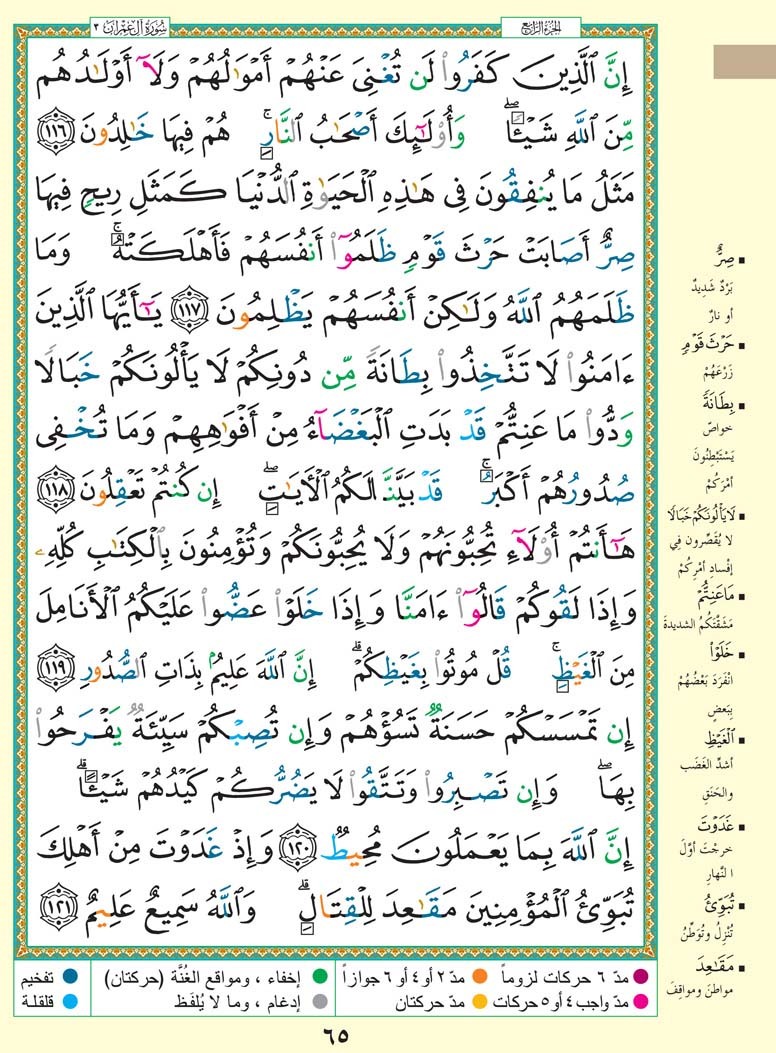 الجزء الرابع
سورة آل عمران ٣
إِنَّ ٱلَّذِينَ كَفَرُوا۟ لَن تُغْنِىَ عَنْهُمْ أَمْوَٰلُهُمْ وَلَآ أَوْلَـٰدُهُم
مِّنَ ٱللَّهِ شَيْـًٔا ۖ وَأُو۟لَـٰٓئِكَ أَصْحَـٰبُ ٱلنَّارِ ۚ هُمْ فِيهَا خَـٰلِدُونَ ﴿١١٦﴾
مَثَلُ مَا يُنفِقُونَ فِى هَـٰذِهِ ٱلْحَيَوٰةِ ٱلدُّنْيَا كَمَثَلِ رِيحٍ فِيهَا
صِرٌّ أَصَابَتْ حَرْثَ قَوْمٍ ظَلَمُوٓا۟ أَنفُسَهُمْ فَأَهْلَكَتْهُ ۚ وَمَا
ظَلَمَهُمُ ٱللَّهُ وَلَـٰكِنْ أَنفُسَهُمْ يَظْلِمُونَ ﴿١١٧﴾ يَـٰٓأَيُّهَا ٱلَّذِينَ
ءَامَنُوا۟ لَا تَتَّخِذُوا۟ بِطَانَةً مِّن دُونِكُمْ لَا يَأْلُونَكُمْ خَبَالًا
وَدُّوا۟ مَا عَنِتُّمْ قَدْ بَدَتِ ٱلْبَغْضَآءُ مِنْ أَفْوَٰهِهِمْ وَمَا تُخْفِى
صُدُورُهُمْ أَكْبَرُ ۚ قَدْ بَيَّنَّا لَكُمُ ٱلْـَٔايَـٰتِ ۖ إِن كُنتُمْ تَعْقِلُونَ ﴿١١٨﴾
هَـٰٓأَنتُمْ أُو۟لَآءِ تُحِبُّونَهُمْ وَلَا يُحِبُّونَكُمْ وَتُؤْمِنُونَ بِٱلْكِتَـٰبِ كُلِّهِۦ
وَإِذَا لَقُوكُمْ قَالُوٓا۟ ءَامَنَّا وَإِذَا خَلَوْا۟ عَضُّوا۟ عَلَيْكُمُ ٱلْأَنَامِلَ
مِنَ ٱلْغَيْظِ ۚ قُلْ مُوتُوا۟ بِغَيْظِكُمْ ۗ إِنَّ ٱللَّهَ عَلِيمٌۢ بِذَاتِ ٱلصُّدُورِ ﴿١١٩﴾
إِن تَمْسَسْكُمْ حَسَنَةٌ تَسُؤْهُمْ وَإِن تُصِبْكُمْ سَيِّئَةٌ يَفْرَحُوا۟
بِهَا ۖ وَإِن تَصْبِرُوا۟ وَتَتَّقُوا۟ لَا يَضُرُّكُمْ كَيْدُهُمْ شَيْـًٔا ۗ
إِنَّ ٱللَّهَ بِمَا يَعْمَلُونَ مُحِيطٌ ﴿١٢٠﴾ وَإِذْ غَدَوْتَ مِنْ أَهْلِكَ
تُبَوِّئُ ٱلْمُؤْمِنِينَ مَقَـٰعِدَ لِلْقِتَالِ ۗ وَٱللَّهُ سَمِيعٌ عَلِيمٌ ﴿١٢١﴾
▪ صِرٌّ
بَرْدٌ شَدِيدٌ
أو نارٌ
▪ حَرْثَ قَوْمٍ
زَرْعَهُمْ
▪ بِطَانَةً
خواصّ
يَسْتَبْطِنُونَ
أمْرَكُمْ
▪ لَا يَأْلُونَكُمْ خَبَالًا
لا يُقَصِّرون في
إفْسادِ أمْرِكُمْ
▪ مَا عَنِتُّمْ
مَشَقَّتَكُمُ الشديدةَ
▪ خَلَوْا۟
انْفَرَدَ بَعْضُهُمْ
بِبَعضٍ
▪ ٱلْغَيْظِ
أشدِّ الغَضَب
والحَنَقِ
▪ غَدَوْتَ
خرجْتَ أوَّلَ
النَّهارِ
▪ تُبَوِّئُ
تُنْزِلُ وتُوَطِّنُ
▪ مَقَـٰعِدَ
مواطنَ ومواقِفَ
مدّ ٦ حركات لزوماً مدّ ٢ أو ٤ أو ٦ جوازاً إخفاء ، ومواقع الغُنَّة (حركتان) تفخيم
مدّ واجب ٤ أو ٥ حركات مدّ حركتان إدغام ، وما لا يُلفَظ قلقلة
٦٥